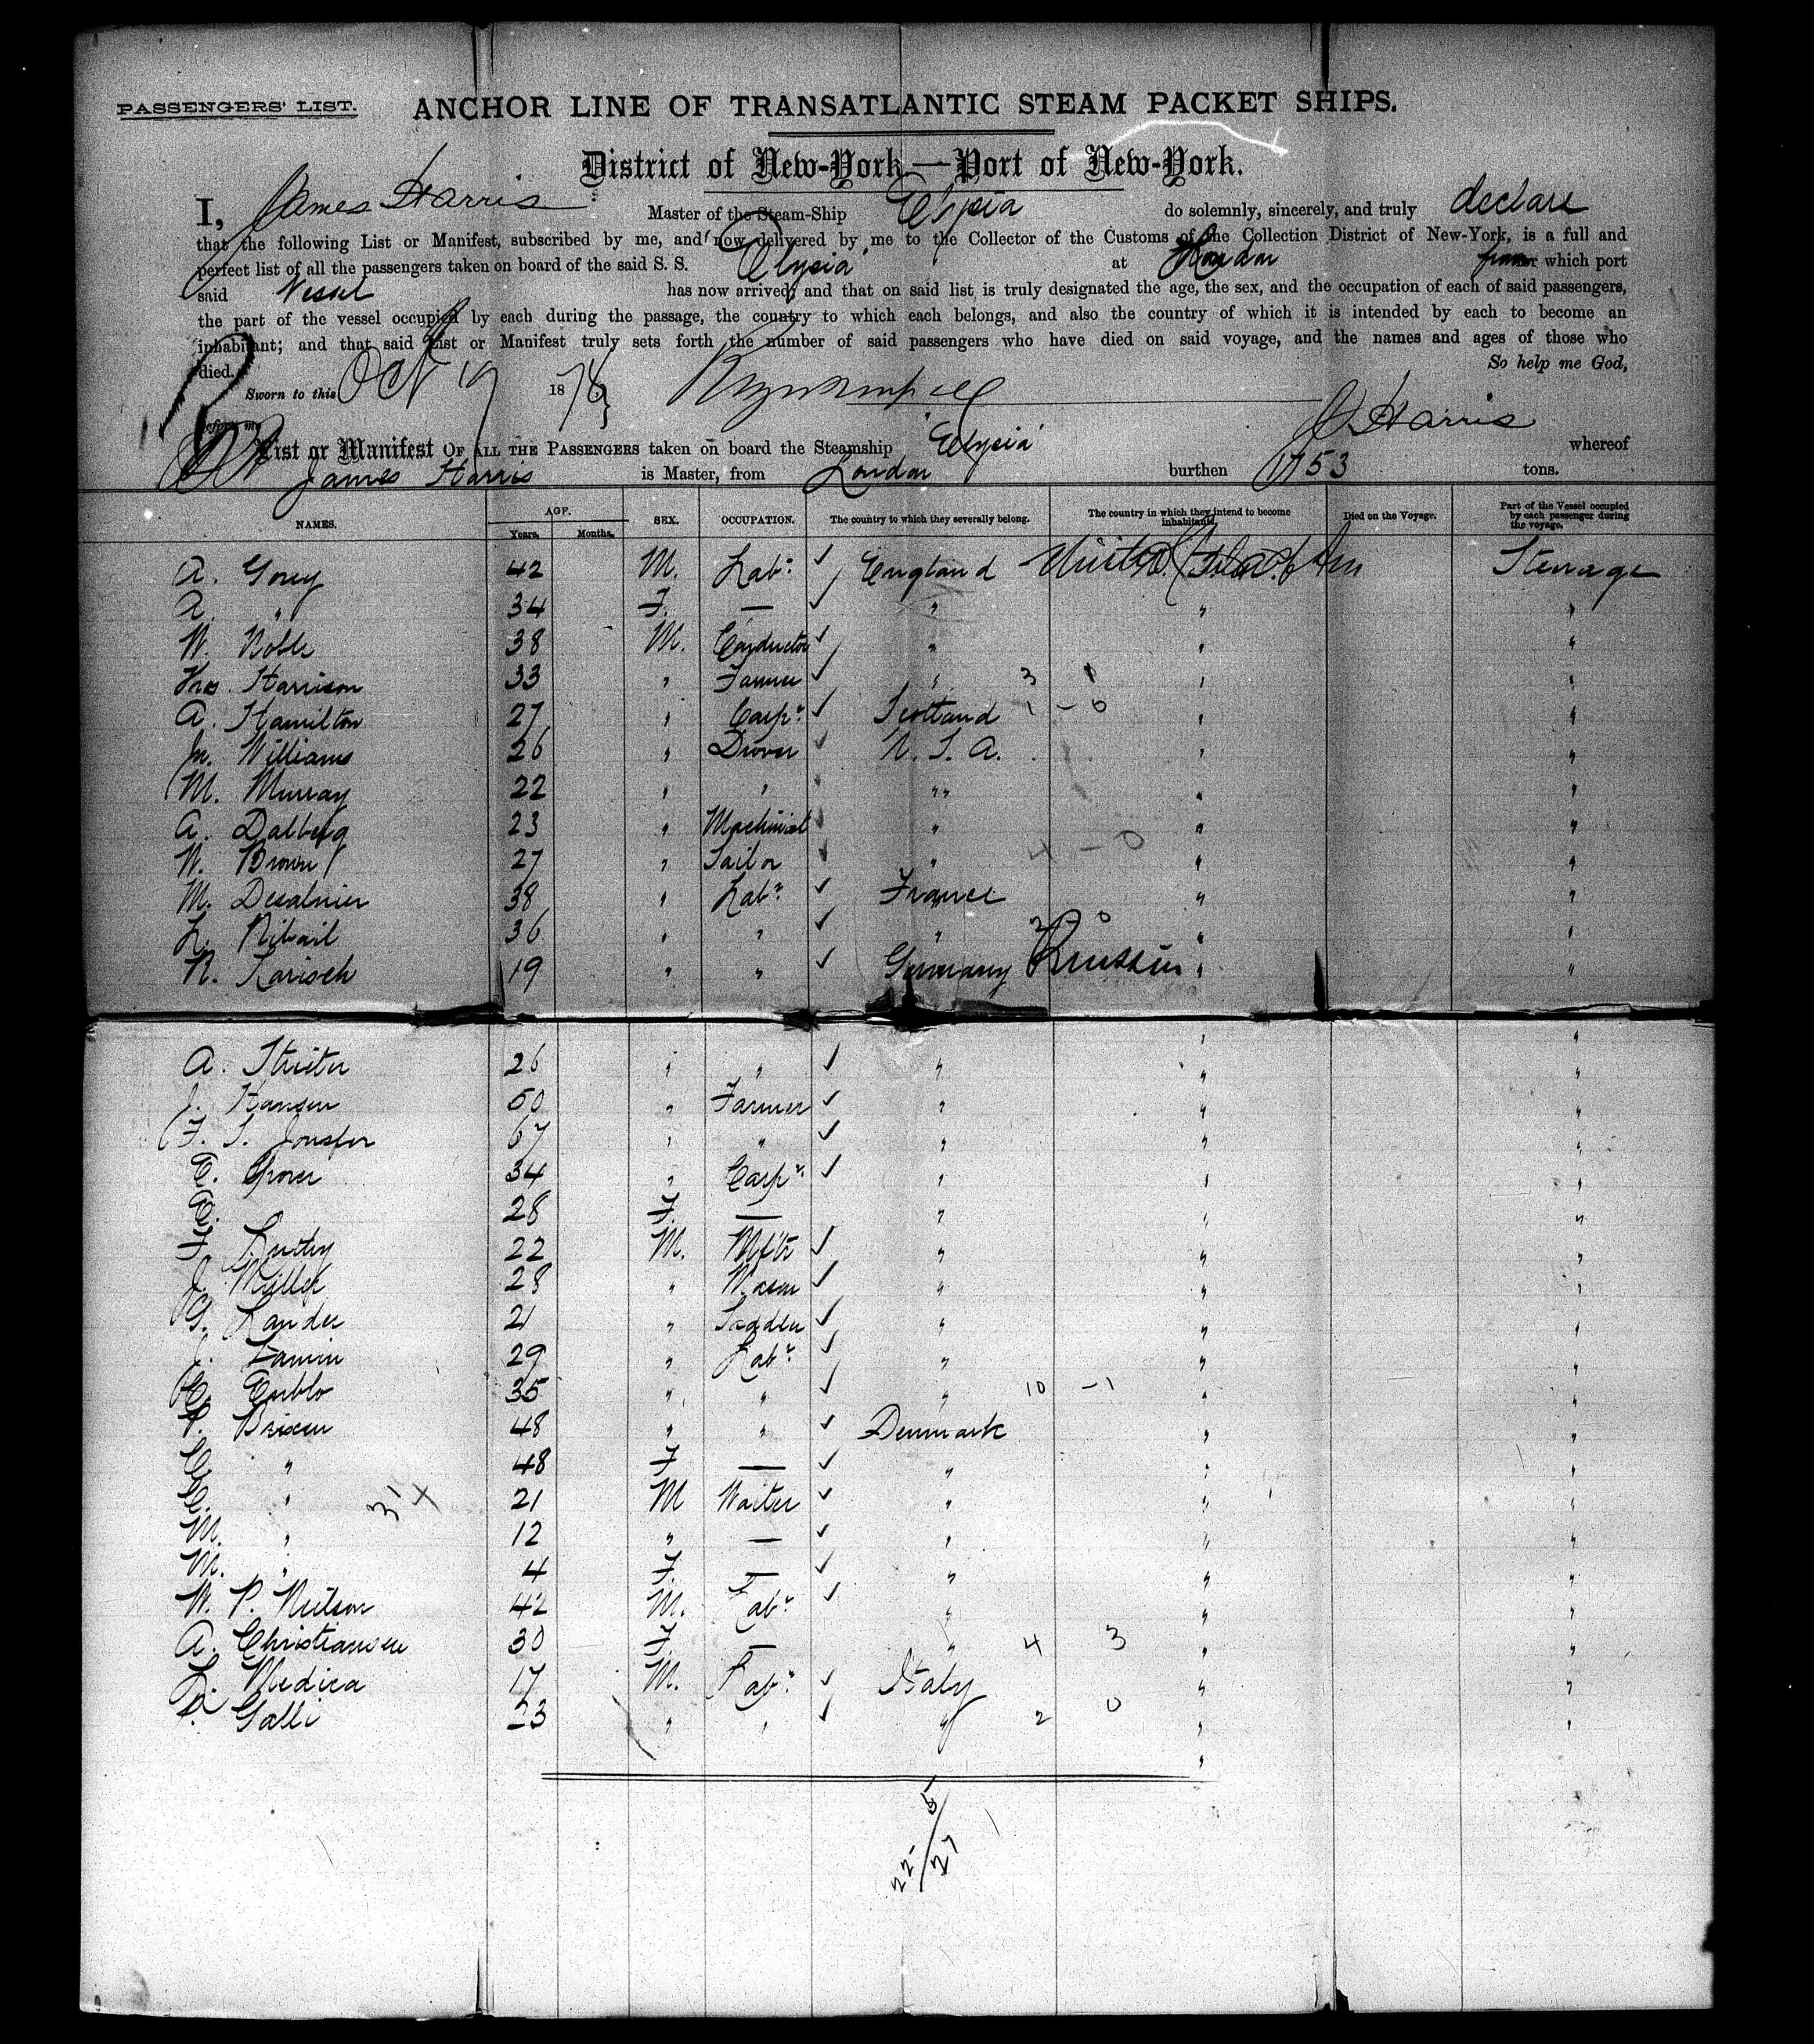 PASSENGERS' LIST. ANCHOR LINE OF TRANSATLANTIC STEAM PACKET SHIPS.
District of New-York—Port of New-York.
I, James Harris Master of the Steam-Ship Elysia do solemnly, sincerely, and truly declare
that the following List or Manifest, subscribed by me, and now delivered by me to the Collector of the Customs of the Collection District of New-York, is a full and
perfect list of all the passengers taken on board of the said S. S. "Elysia" at London from which port
said Vessel has now arrived; and that on said list is truly designated the age, the sex, and the occupation of each of said passengers,
the part of the vessel occupied by each during the passage, the country to which each belongs, and also the country of which it is intended by each to become an
inhabitant; and that said List or Manifest truly sets forth the number of said passengers who have died on said voyage, and the names and ages of those who
died. So help me God,
Sworn to this Oct 19 1878
before me J Harris
List or Manifest OF ALL THE PASSENGERS taken on board the Steamship "Elysia" whereof
James Harris is Master, from London burthen 1753 tons.
NAMES. AGE. Years. Months. SEX. OCCUPATION. The country to which they severally belong. The country in which they intend to become inhabitants. Died on the Voyage. Part of the Vessel occupied by each passenger during the voyage.
A. 42 M. Labr. ✓ England United States of Am Steerage
A. " 34 F. — ✓ " " "
W. Noble 38 M. Conductor ✓ " " "
Thos. Harrison 33 " Farmer ✓ " 3 1 " "
A. Hamilton 27 " Carpr. ✓ Scotland 1 – 0 " "
Jn. Williams 26 " Drover ✓ U. S. A. " "
M. Murray 22 " " " " " "
A. Dalberg 23 " Machinist ✓ " " "
W. Brown 27 " Sailor ✓ " 4 – 0 " "
M. Desalnier 38 " Labr. ✓ France " "
L. Ribail 36 " " ✓ " 2 0 " "
N. Karisch 19 " " ✓ Germany " "
A. Strieter 26 " " ✓ " " "
J. Hansen 50 " Farmer ✓ " " "
F. S. 67 " " ✓ " " "
E. 34 " Carpr. ✓ " " "
E. 28 F. — " " "
F. 22 M. ✓ " " "
J. Müller 28 " Mason ✓ " " "
G. Lander 21 " Saddler ✓ " " "
J. 29 " Labr. ✓ " " "
C. 35 " " ✓ " 10 – 1 " "
P. Brixen 48 " " ✓ Denmark " "
C. " 48 F — ✓ " " "
C. " 31 4 21 M Waiter ✓ " " "
M. " 12 " — ✓ " " "
M. " 4 F. — ✓ " " "
W. P. Neilson 42 M. Labr. ✓ " " "
A. Christiansen 30 F. — " 4 3 " "
L. Medica 17 M. Labr. ✓ Italy " "
P. Galli 23 " " ✓ " 2 0 " "
5
22 / 27